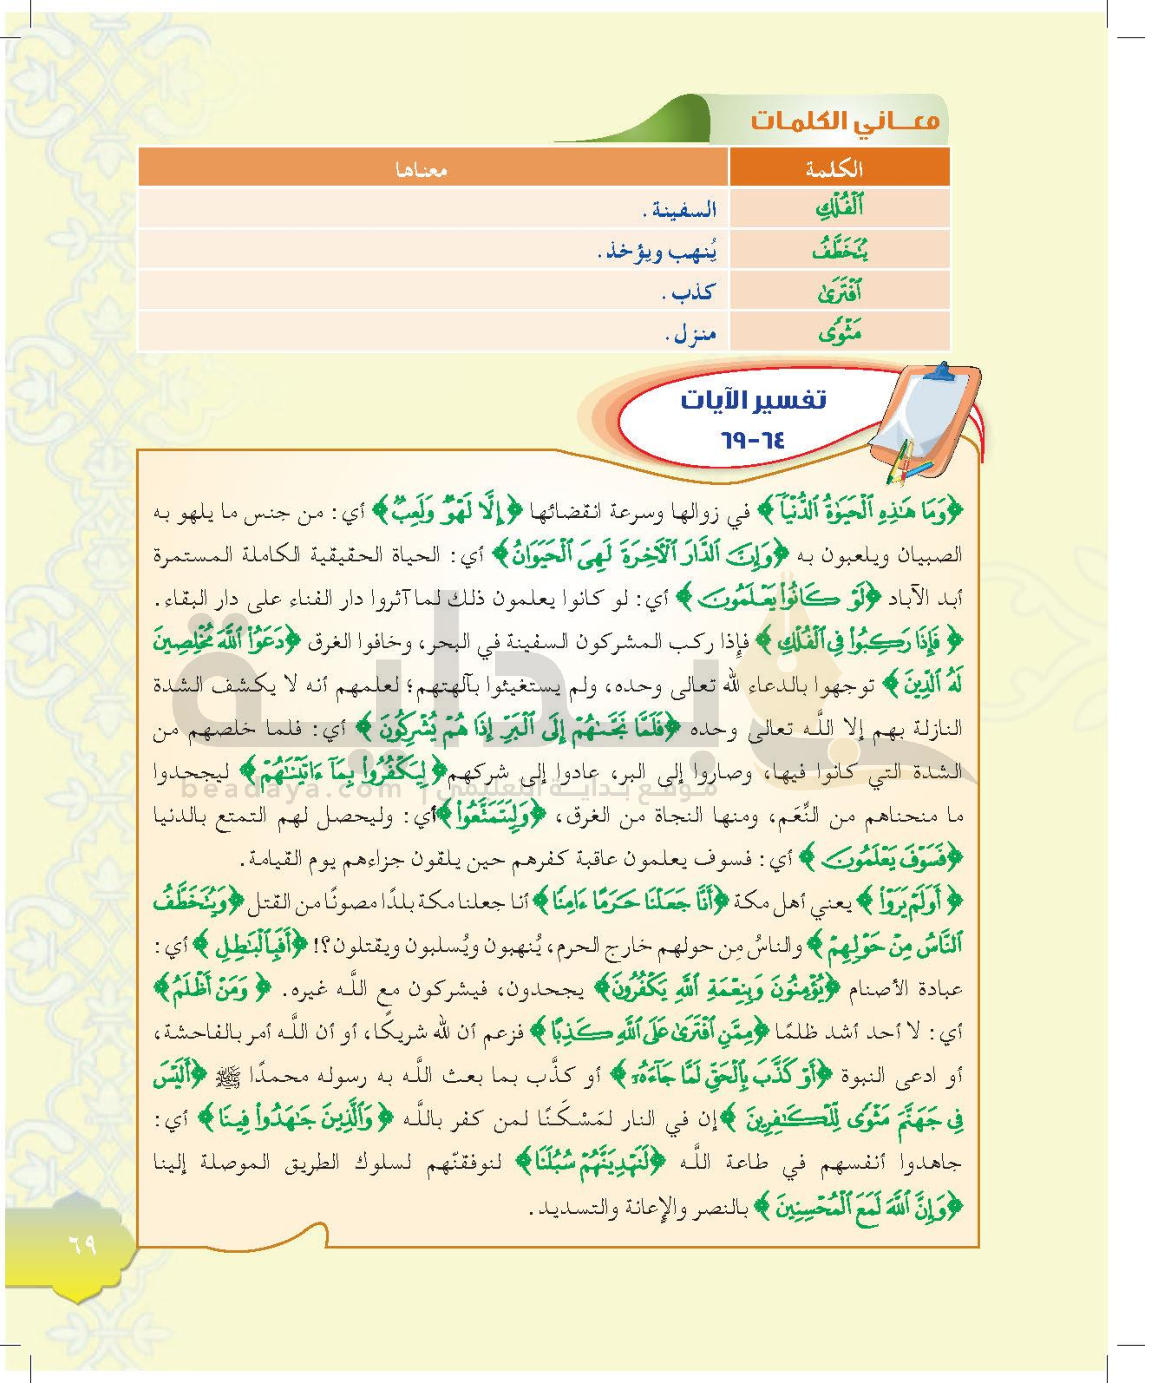 معـــاني الكلمـات
الكلمة معناها
ٱلۡفُلۡكِ السفينة .
يُتَخَطَّفُ يُنهب ويؤخذ .
ٱفۡتَرَىٰ كذب .
مَثۡوٗى منزل .
تفسير الآيات
٦٤-٦٩
﴿وَمَا هَٰذِهِ ٱلۡحَيَوٰةُ ٱلدُّنۡيَآ﴾ في زوالها وسرعة انقضائها ﴿إِلَّا لَهۡوٞ وَلَعِبٞ﴾ أي: من جنس ما يلهو به
الصبيان ويلعبون به ﴿وَإِنَّ ٱلدَّارَ ٱلۡأٓخِرَةَ لَهِيَ ٱلۡحَيَوَانُ﴾ أي: الحياة الحقيقية الكاملة المستمرة
أبد الآباد ﴿لَوۡ كَانُواْ يَعۡلَمُونَ﴾ أي: لو كانوا يعلمون ذلك لما آثروا دار الفناء على دار البقاء.
﴿فَإِذَا رَكِبُواْ فِي ٱلۡفُلۡكِ﴾ فإذا ركب المشركون السفينة في البحر، وخافوا الغرق ﴿دَعَوُاْ ٱللَّهَ مُخۡلِصِينَ
لَهُ ٱلدِّينَ﴾ توجهوا بالدعاء لله تعالى وحده، ولم يستغيثوا بآلهتهم؛ لعلمهم أنه لا يكشف الشدة
النازلة بهم إلا اللَّه تعالى وحده ﴿فَلَمَّا نَجَّىٰهُمۡ إِلَى ٱلۡبَرِّ إِذَا هُمۡ يُشۡرِكُونَ﴾ أي: فلما خلصهم من
الشدة التي كانوا فيها، وصاروا إلى البر، عادوا إلى شركهم ﴿لِيَكۡفُرُواْ بِمَآ ءَاتَيۡنَٰهُمۡ﴾ ليجحدوا
بداية
موقع بداية التعليمي | beadaya.com
ما منحناهم من النِّعَم، ومنها النجاة من الغرق، ﴿وَلِيَتَمَتَّعُواْ﴾أي: وليحصل لهم التمتع بالدنيا
﴿فَسَوۡفَ يَعۡلَمُونَ﴾ أي: فسوف يعلمون عاقبة كفرهم حين يلقون جزاءهم يوم القيامة.
﴿أَوَلَمۡ يَرَوۡاْ﴾ يعني أهل مكة ﴿أَنَّا جَعَلۡنَا حَرَمًا ءَامِنٗا﴾ أنا جعلنا مكة بلدًا مصونًا من القتل ﴿وَيُتَخَطَّفُ
ٱلنَّاسُ مِنۡ حَوۡلِهِمۡ﴾ والناسُ مِن حولهم خارج الحرم، يُنهبون ويُسلبون ويقتلون؟! ﴿أَفَبِٱلۡبَٰطِلِ﴾ أي:
عبادة الأصنام ﴿يُؤۡمِنُونَ وَبِنِعۡمَةِ ٱللَّهِ يَكۡفُرُونَ﴾ يجحدون، فيشركون مع اللَّه غيره. ﴿وَمَنۡ أَظۡلَمُ﴾
أي: لا أحد أشد ظلمًا ﴿مِمَّنِ ٱفۡتَرَىٰ عَلَى ٱللَّهِ كَذِبًا﴾ فزعم أن لله شريكًا، أو أن اللَّه أمر بالفاحشة،
أو ادعى النبوة ﴿أَوۡ كَذَّبَ بِٱلۡحَقِّ لَمَّا جَآءَهُۥٓ﴾ أو كذَّب بما بعث اللَّه به رسوله محمدًا ﷺ ﴿أَلَيۡسَ
فِي جَهَنَّمَ مَثۡوٗى لِّلۡكَٰفِرِينَ﴾ إن في النار لمَسْكَنًا لمن كفر باللَّه ﴿وَٱلَّذِينَ جَٰهَدُواْ فِينَا﴾ أي:
جاهدوا أنفسهم في طاعة اللَّه ﴿لَنَهۡدِيَنَّهُمۡ سُبُلَنَا﴾ لنوفقنّهم لسلوك الطريق الموصلة إلينا
﴿وَإِنَّ ٱللَّهَ لَمَعَ ٱلۡمُحۡسِنِينَ﴾ بالنصر والإعانة والتسديد.
٦٩